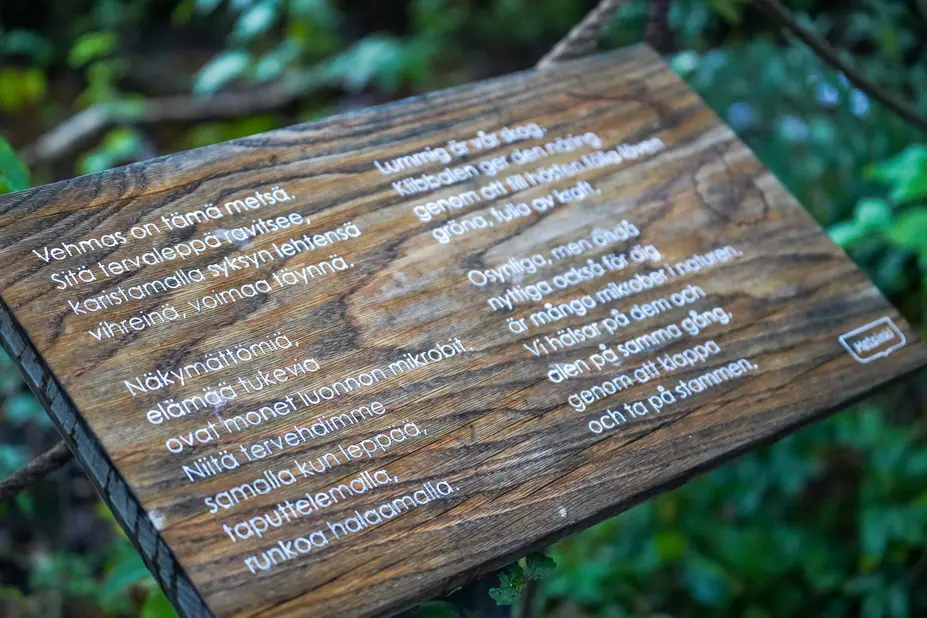 Vehmas on tämä metsä.
Sitä tervaleppä ravitsee,
karistamalla syksyn lehtensä
vihreinä, voimaa täynnä.
Näkymättömiä,
elämää tukevia
ovat monet luonnon mikrobit.
Niitä tervehdimme
samalla kun leppää,
taputtelemalla,
runkoa halaamalla.
Lummig är vår skog.
Klibbalen ger den näring
genom att till hösten fälla löven
gröna, fulla av kraft.
Osynliga, men ändå
nyttiga också för dig
är många mikrober i naturen.
Vi hälsar på dem och
alen på samma gång,
genom att klappa
och ta på stammen.
Helsinki